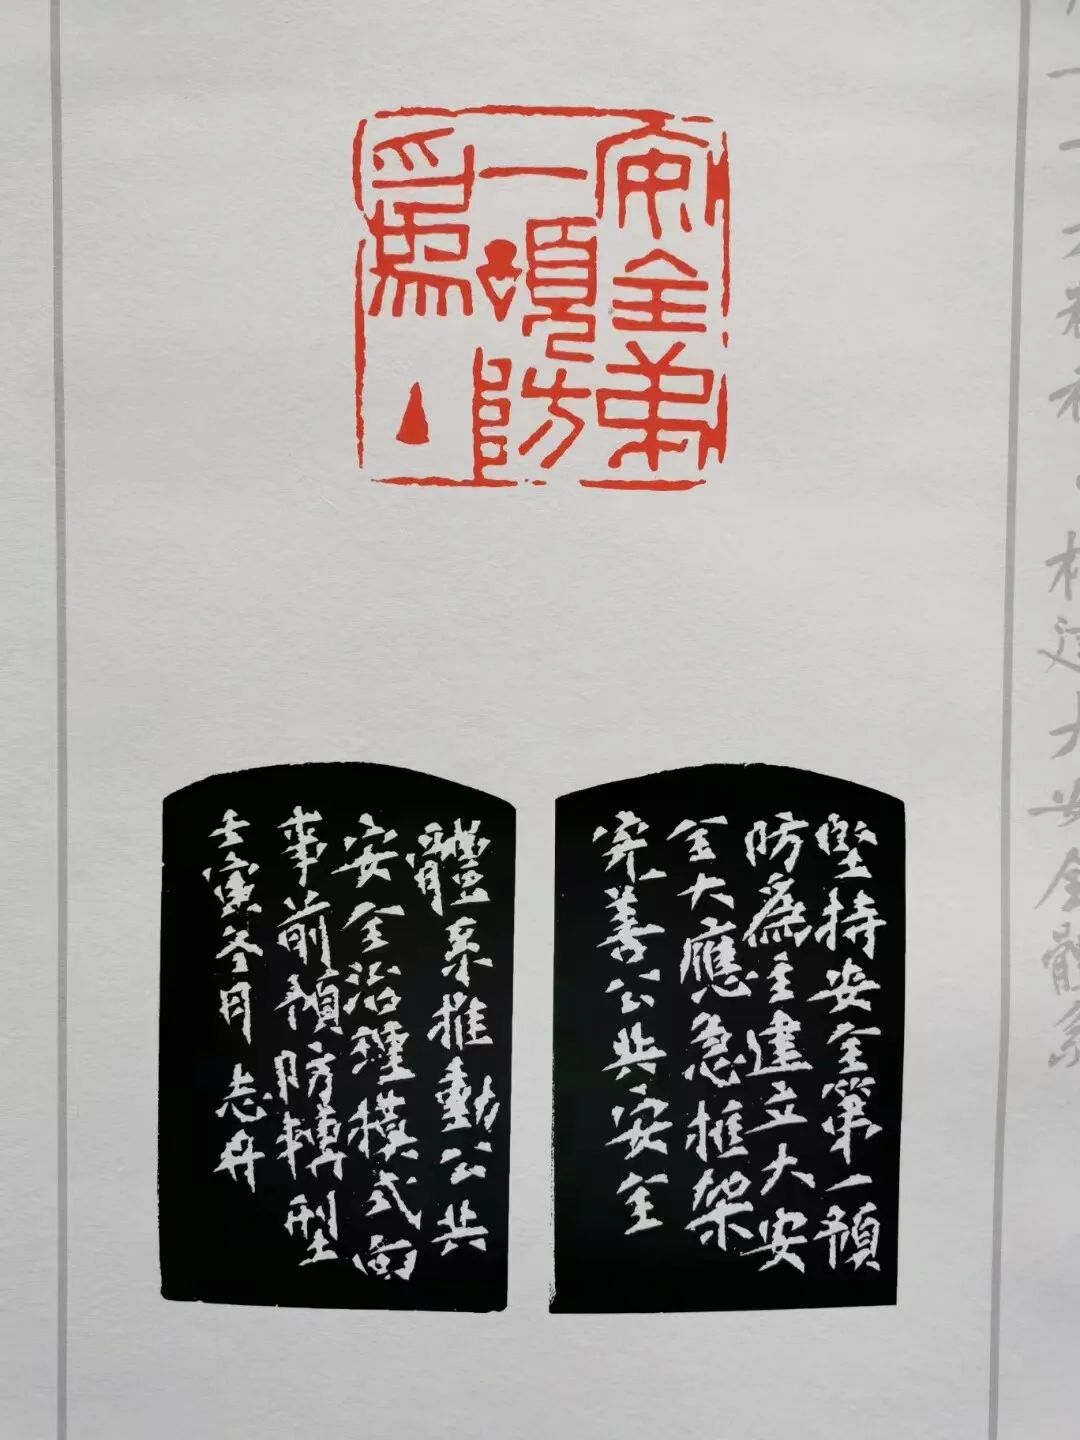 安全第
一預防
為主
堅持安全第一預
防為主建立大安
全大應急框架
完善公共安全
體系推動公共
安全治理模式向
事前預防轉型
壬寅冬月志舟
構建大安全體系